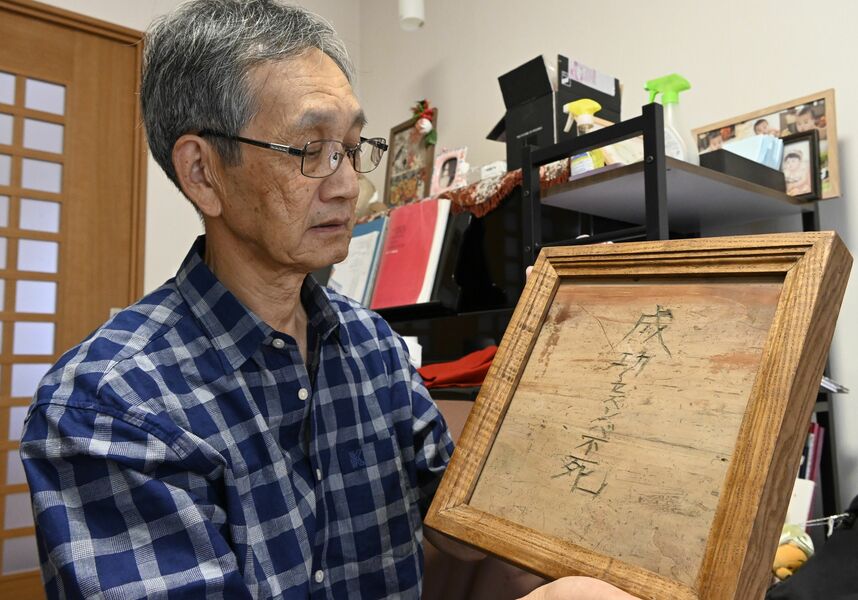 成功セズンバ不死
K